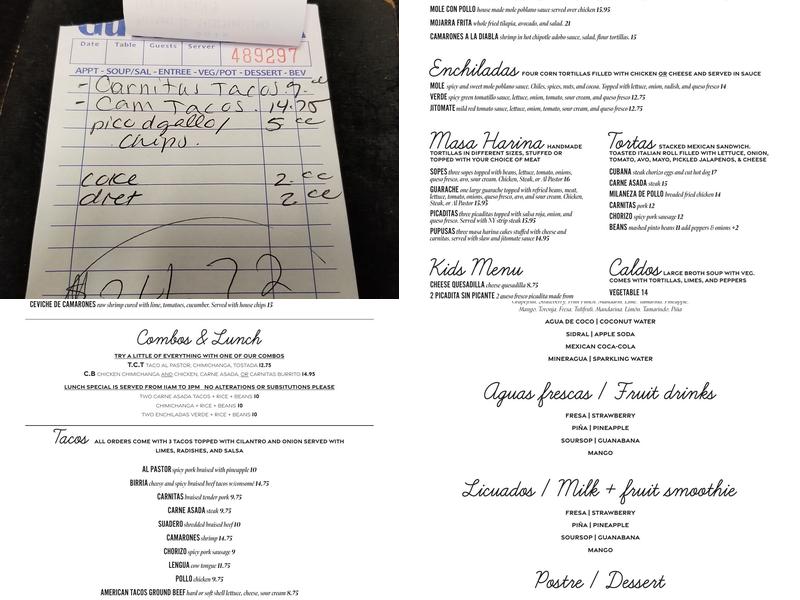 Date Table Guests Server
489297
APPT - SOUP/SAL - ENTREE - VEG/POT - DESSERT - BEV
- Carnitus Tacos 9.
- Cam Tacos. 14.75
pico dgallo/ 5 cc
chips.
coke 2. cc
diet 2 cc
MOLE CON POLLO house made mole poblano sauce served over chicken 15.95
MOJARRA FRITA whole fried tilapia, avocado, and salad. 21
CAMARONES A LA DIABLA shrimp in hot chipotle adobo sauce, salad, flour tortillas. 15
Enchiladas FOUR CORN TORTILLAS FILLED WITH CHICKEN OR CHEESE AND SERVED IN SAUCE
MOLE spicy and sweet mole poblano sauce. Chiles, spices, nuts, and cocoa. Topped with lettuce, onion, radish, and queso fresco 14
VERDE spicy green tomatillo sauce, lettuce, onion, tomato, sour cream, and queso fresco 12.75
JITOMATE mild red tomato sauce, lettuce, onion, tomato, sour cream, and queso fresco 12.75
Masa Harina HANDMADE
TORTILLAS IN DIFFERENT SIZES, STUFFED OR
TOPPED WITH YOUR CHOICE OF MEAT
SOPES three sopes topped with beans, lettuce, tomato, onions,
queso fresco, avo, sour cream. Chicken, Steak, or Al Pastor 16
GUARACHE one large guarache topped with refried beans, meat,
lettuce, tomato, onions, queso fresco, avo, and sour cream. Chicken,
Steak, or Al Pastor 15.95
PICADITAS three picaditas topped with salsa roja, onion, and
queso fresco. Served with NY strip steak 15.95
PUPUSAS three masa harina cakes stuffed with cheese and
carnitas, served with slaw and jitomate sauce 14.95
Tortas STACKED MEXICAN SANDWICH.
TOASTED ITALIAN ROLL FILLED WITH LETTUCE, ONION,
TOMATO, AVO, MAYO, PICKLED JALAPENOS, & CHEESE
CUBANA steak chorizo eggs and cut hot dog 17
CARNE ASADA steak 15
MILANEZA DE POLLO breaded fried chicken 14
CARNITAS pork 12
CHORIZO spicy pork sausage 12
BEANS mashed pinto beans 11 add peppers & onions +2
Kids Menu
CHEESE QUESADILLA cheese quesadilla 8.75
2 PICADITA SIN PICANTE 2 queso fresco picadita made from
Caldos LARGE BROTH SOUP WITH VEG.
COMES WITH TORTILLAS, LIMES, AND PEPPERS
VEGETABLE 14
CEVICHE DE CAMARONES raw shrimp cured with lime, tomatoes, cucumber. Served with house chips 15
Combos & Lunch
TRY A LITTLE OF EVERYTHING WITH ONE OF OUR COMBOS
T.C.T TACO AL PASTOR, CHIMICHANGA, TOSTADA 12.75
C.B CHICKEN CHIMICHANGA AND CHICKEN, CARNE ASADA, OR CARNITAS BURRITO 14.95
LUNCH SPECIAL IS SERVED FROM 11AM TO 3PM NO ALTERATIONS OR SUBSITUTIONS PLEASE
TWO CARNE ASADA TACOS + RICE + BEANS 10
CHIMICHANGA + RICE + BEANS 10
TWO ENCHILADAS VERDE + RICE + BEANS 10
Tacos ALL ORDERS COME WITH 3 TACOS TOPPED WITH CILANTRO AND ONION SERVED WITH
LIMES, RADISHES, AND SALSA
AL PASTOR spicy pork braised with pineapple 10
BIRRIA cheesy and spicy braised beef tacos w/consomé 14.75
CARNITAS braised tender pork 9.75
CARNE ASADA steak 9.75
SUADERO shredded braised beef 10
CAMARONES shrimp 14.75
CHORIZO spicy pork sausage 9
LENGUA cow tongue 11.75
POLLO chicken 9.75
AMERICAN TACOS GROUND BEEF hard or soft shell lettuce, cheese, sour cream 8.75
Grapefruit, Strawberry, Fruit Punch, Mandarin, Lime, Tamarind, Pineapple,
Mango, Toronja, Fresa, Tutifruti, Mandarina, Limón, Tamarindo, Piña
AGUA DE COCO | COCONUT WATER
SIDRAL | APPLE SODA
MEXICAN COCA-COLA
MINERAGUA | SPARKLING WATER
Aguas frescas / Fruit drinks
FRESA | STRAWBERRY
PIÑA | PINEAPPLE
SOURSOP | GUANABANA
MANGO
Licuados / Milk + fruit smoothie
FRESA | STRAWBERRY
PIÑA | PINEAPPLE
SOURSOP | GUANABANA
MANGO
Postre / Dessert